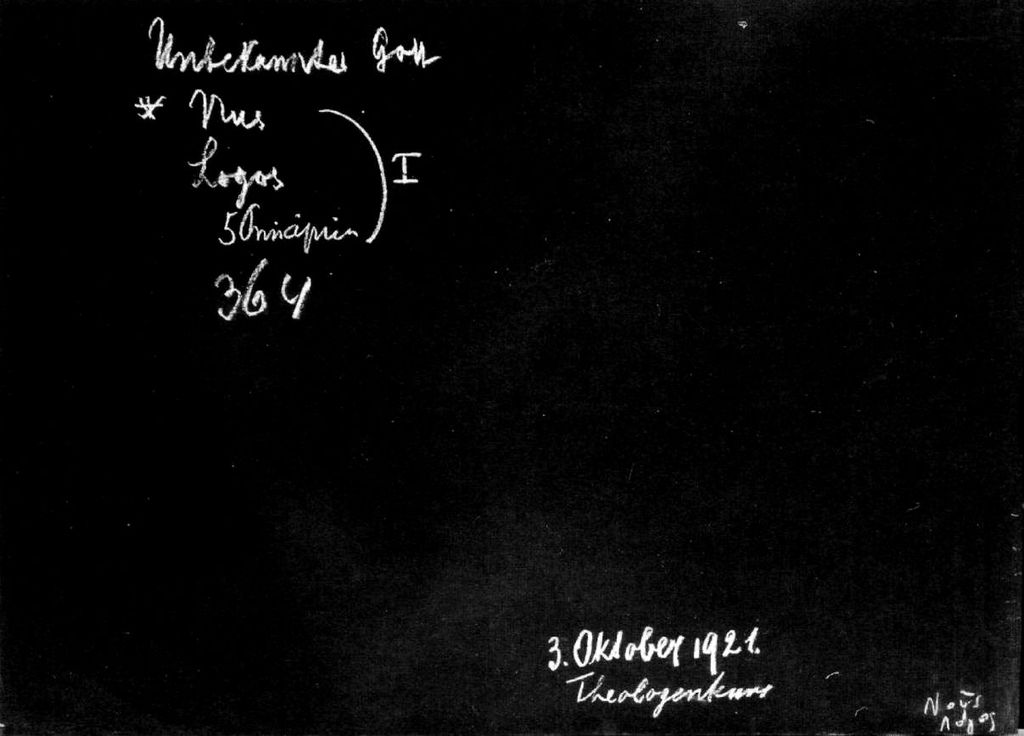 Unbekannter Gott
* Nus
Logos
5 Principien
I
364
3. Oktober 1921.
Theologenkurs
Noũs
Λόγos